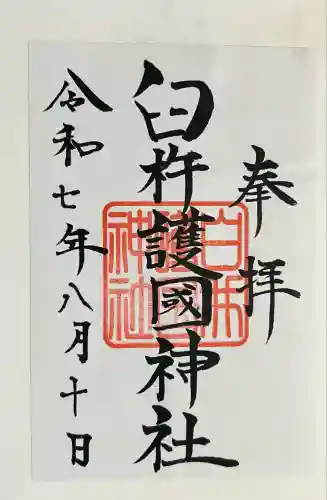 奉拝
臼杵護國神社
令和七年八月十日
臼杵
護國
神社